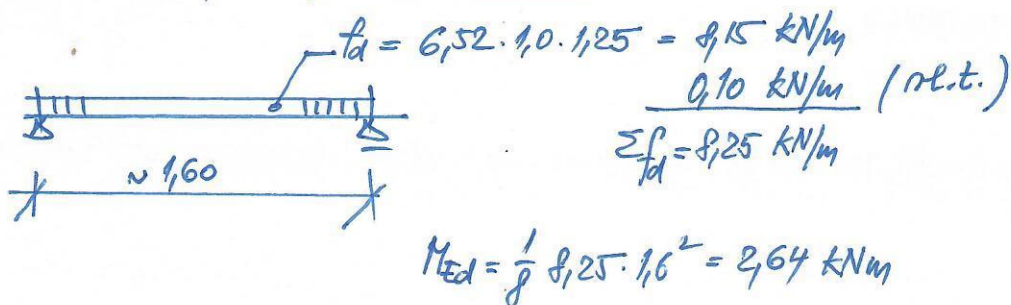 fd = 6,52 · 1,0 · 1,25 = 8,15 kN/m
0,10 kN/m (vl.t.)
Σfd = 8,25 kN/m
~ 1,60
MEd = 1/8 8,25 · 1,6² = 2,64 kNm